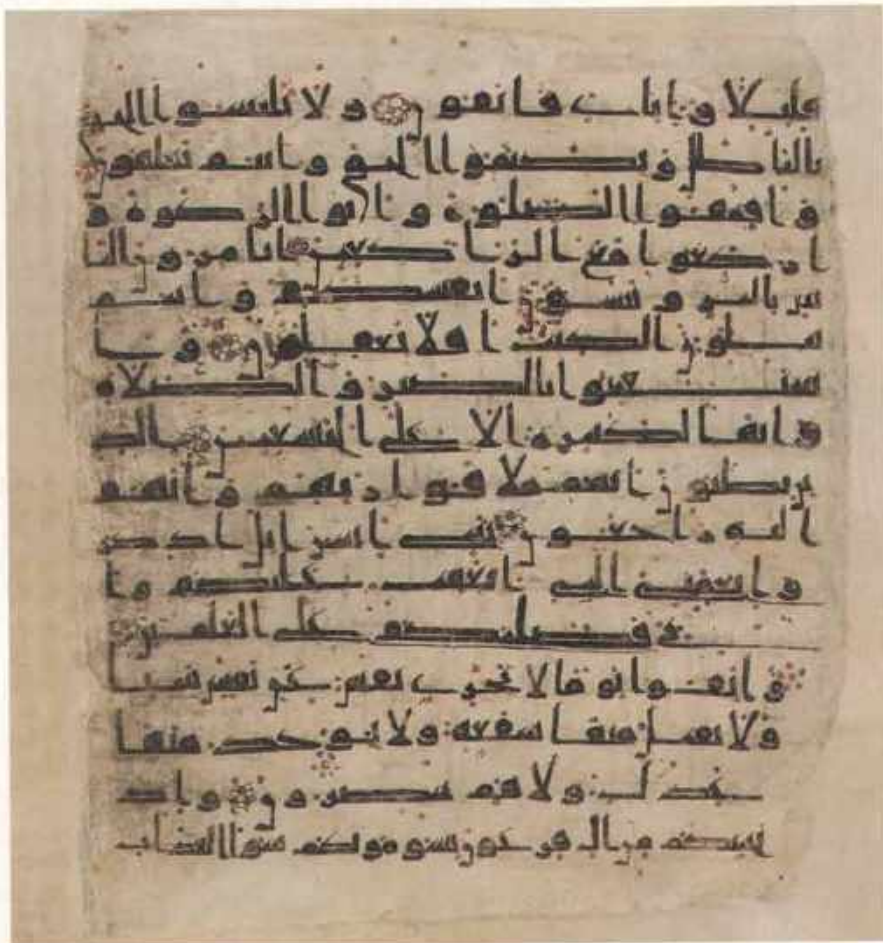 قليلا و اياى فاتقون و لا تلبسوا الحق
بالباطل و تكتموا الحق و انتم تعلمون
و اقيموا الصلوة و اتوا الزكوة و
اركعوا مع الركعين اتامرون النا
س بالبر و تنسون انفسكم و انتم
تتلون الكتب افلا تعقلون و ا
ستعينوا بالصبر و الصلاة
و انها لكبيرة الا على الخشعين الذ
ين يظنون انهم ملاقوا ربهم و انهم
اليه راجعون يبنى اسرايل اذكر
وا نعمتى التى انعمت عليكم و ا
نى فضلتكم على العلمين
و اتقوا يوما لا تجزى نفس عن نفس شيئا
و لا يقبل منها شفعة و لا يؤخذ منها
عدل و لا هم ينصرون و اذ
نجينكم من ال فرعون يسومونكم سوا العذاب